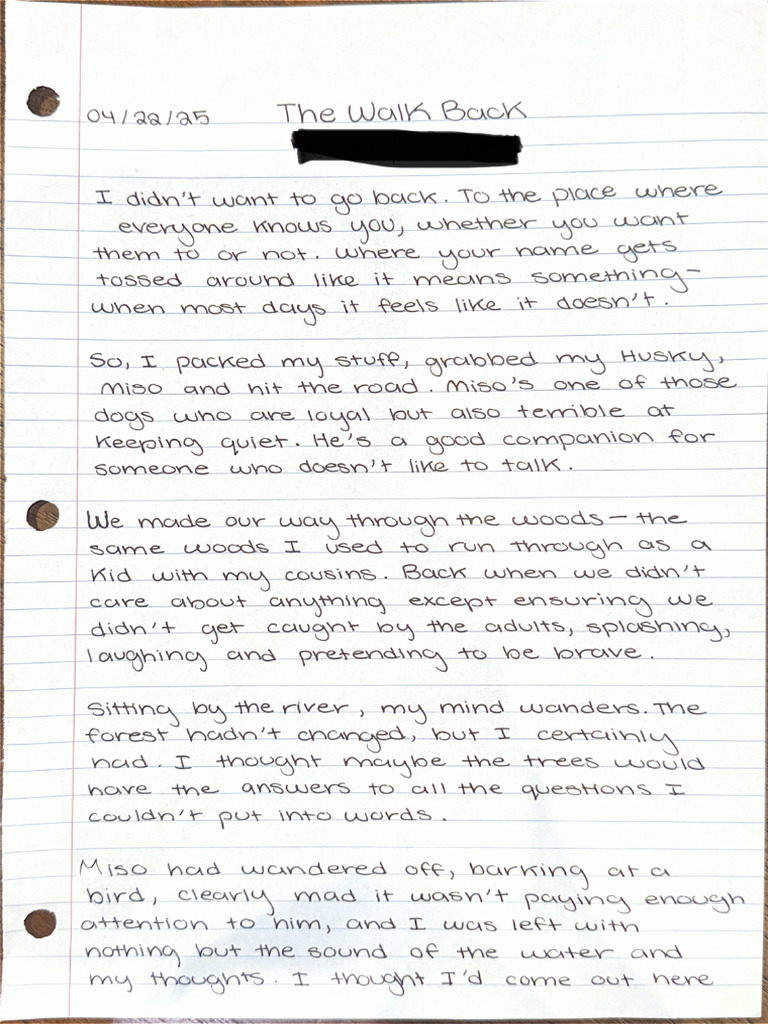 04/22/25 The Walk Back
I didn't want to go back. To the place where
everyone knows you, whether you want
them to or not. Where your name gets
tossed around like it means something-
when most days it feels like it doesn't.
So, I packed my stuff, grabbed my Husky,
Miso and hit the road. Miso's one of those
dogs who are loyal but also terrible at
keeping quiet. He's a good companion for
someone who doesn't like to talk.
We made our way through the woods - the
same woods I used to run through as a
kid with my cousins. Back when we didn't
care about anything except ensuring we
didn't get caught by the adults, splashing,
laughing and pretending to be brave.
Sitting by the river, my mind wanders. The
forest hadn't changed, but I certainly
had. I thought maybe the trees would
have the answers to all the questions I
couldn't put into words.
Miso had wandered off, barking at a
bird, clearly mad it wasn't paying enough
attention to him, and I was left with
nothing but the sound of the water and
my thoughts. I thought I'd come out here